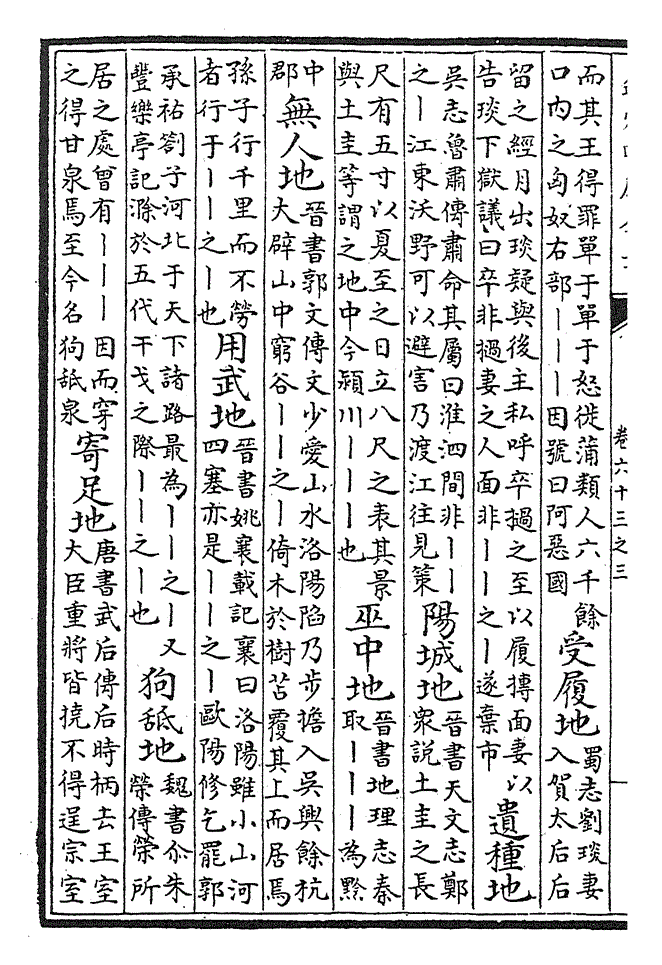 卷六十三之三
而其王得罪單于單于怒徙蒲類人六千餘
口内之匈奴右部丨丨丨因號曰阿惡國
受履地
蜀志劉琰妻
入賀太后后
留之經月出琰疑與後主私呼卒撾之至以履摶面妻以
告琰下獄議曰卒非撾妻之人面非丨丨之丨遂棄市
遺種地
吳志魯肅傳肅命其屬曰淮泗間非丨丨
之丨江東沃野可以避害乃渡江往見策
陽城地
晉書天文志鄭
衆説土圭之長
尺有五寸以夏至之日立八尺之表其景
與土圭等謂之地中今潁川丨丨丨也
巫中地
晉書地理志秦
取丨丨丨為黔
中
郡
無人地
晉書郭文傳文少愛山水洛陽陷乃步擔入吳興餘杭
大辟山中窮谷丨丨之丨倚木於樹苫覆其上而居焉
孫子行千里而不勞
者行于丨丨之丨也
用武地
晉書姚襄載記襄曰洛陽雖小山河
四塞亦是丨丨之丨歐陽修乞罷郭
承祐劄子河北于天下諸路最為丨丨之丨又
豐樂亭記滁於五代干戈之際丨丨之丨也
狗舐地
魏書尒朱
榮傳榮所
居之處曾有丨丨丨因而穿
之得甘泉焉至今名狗舐泉
寄足地
唐書武后傳后時柄去王室
大臣重將皆撓不得逞宗室